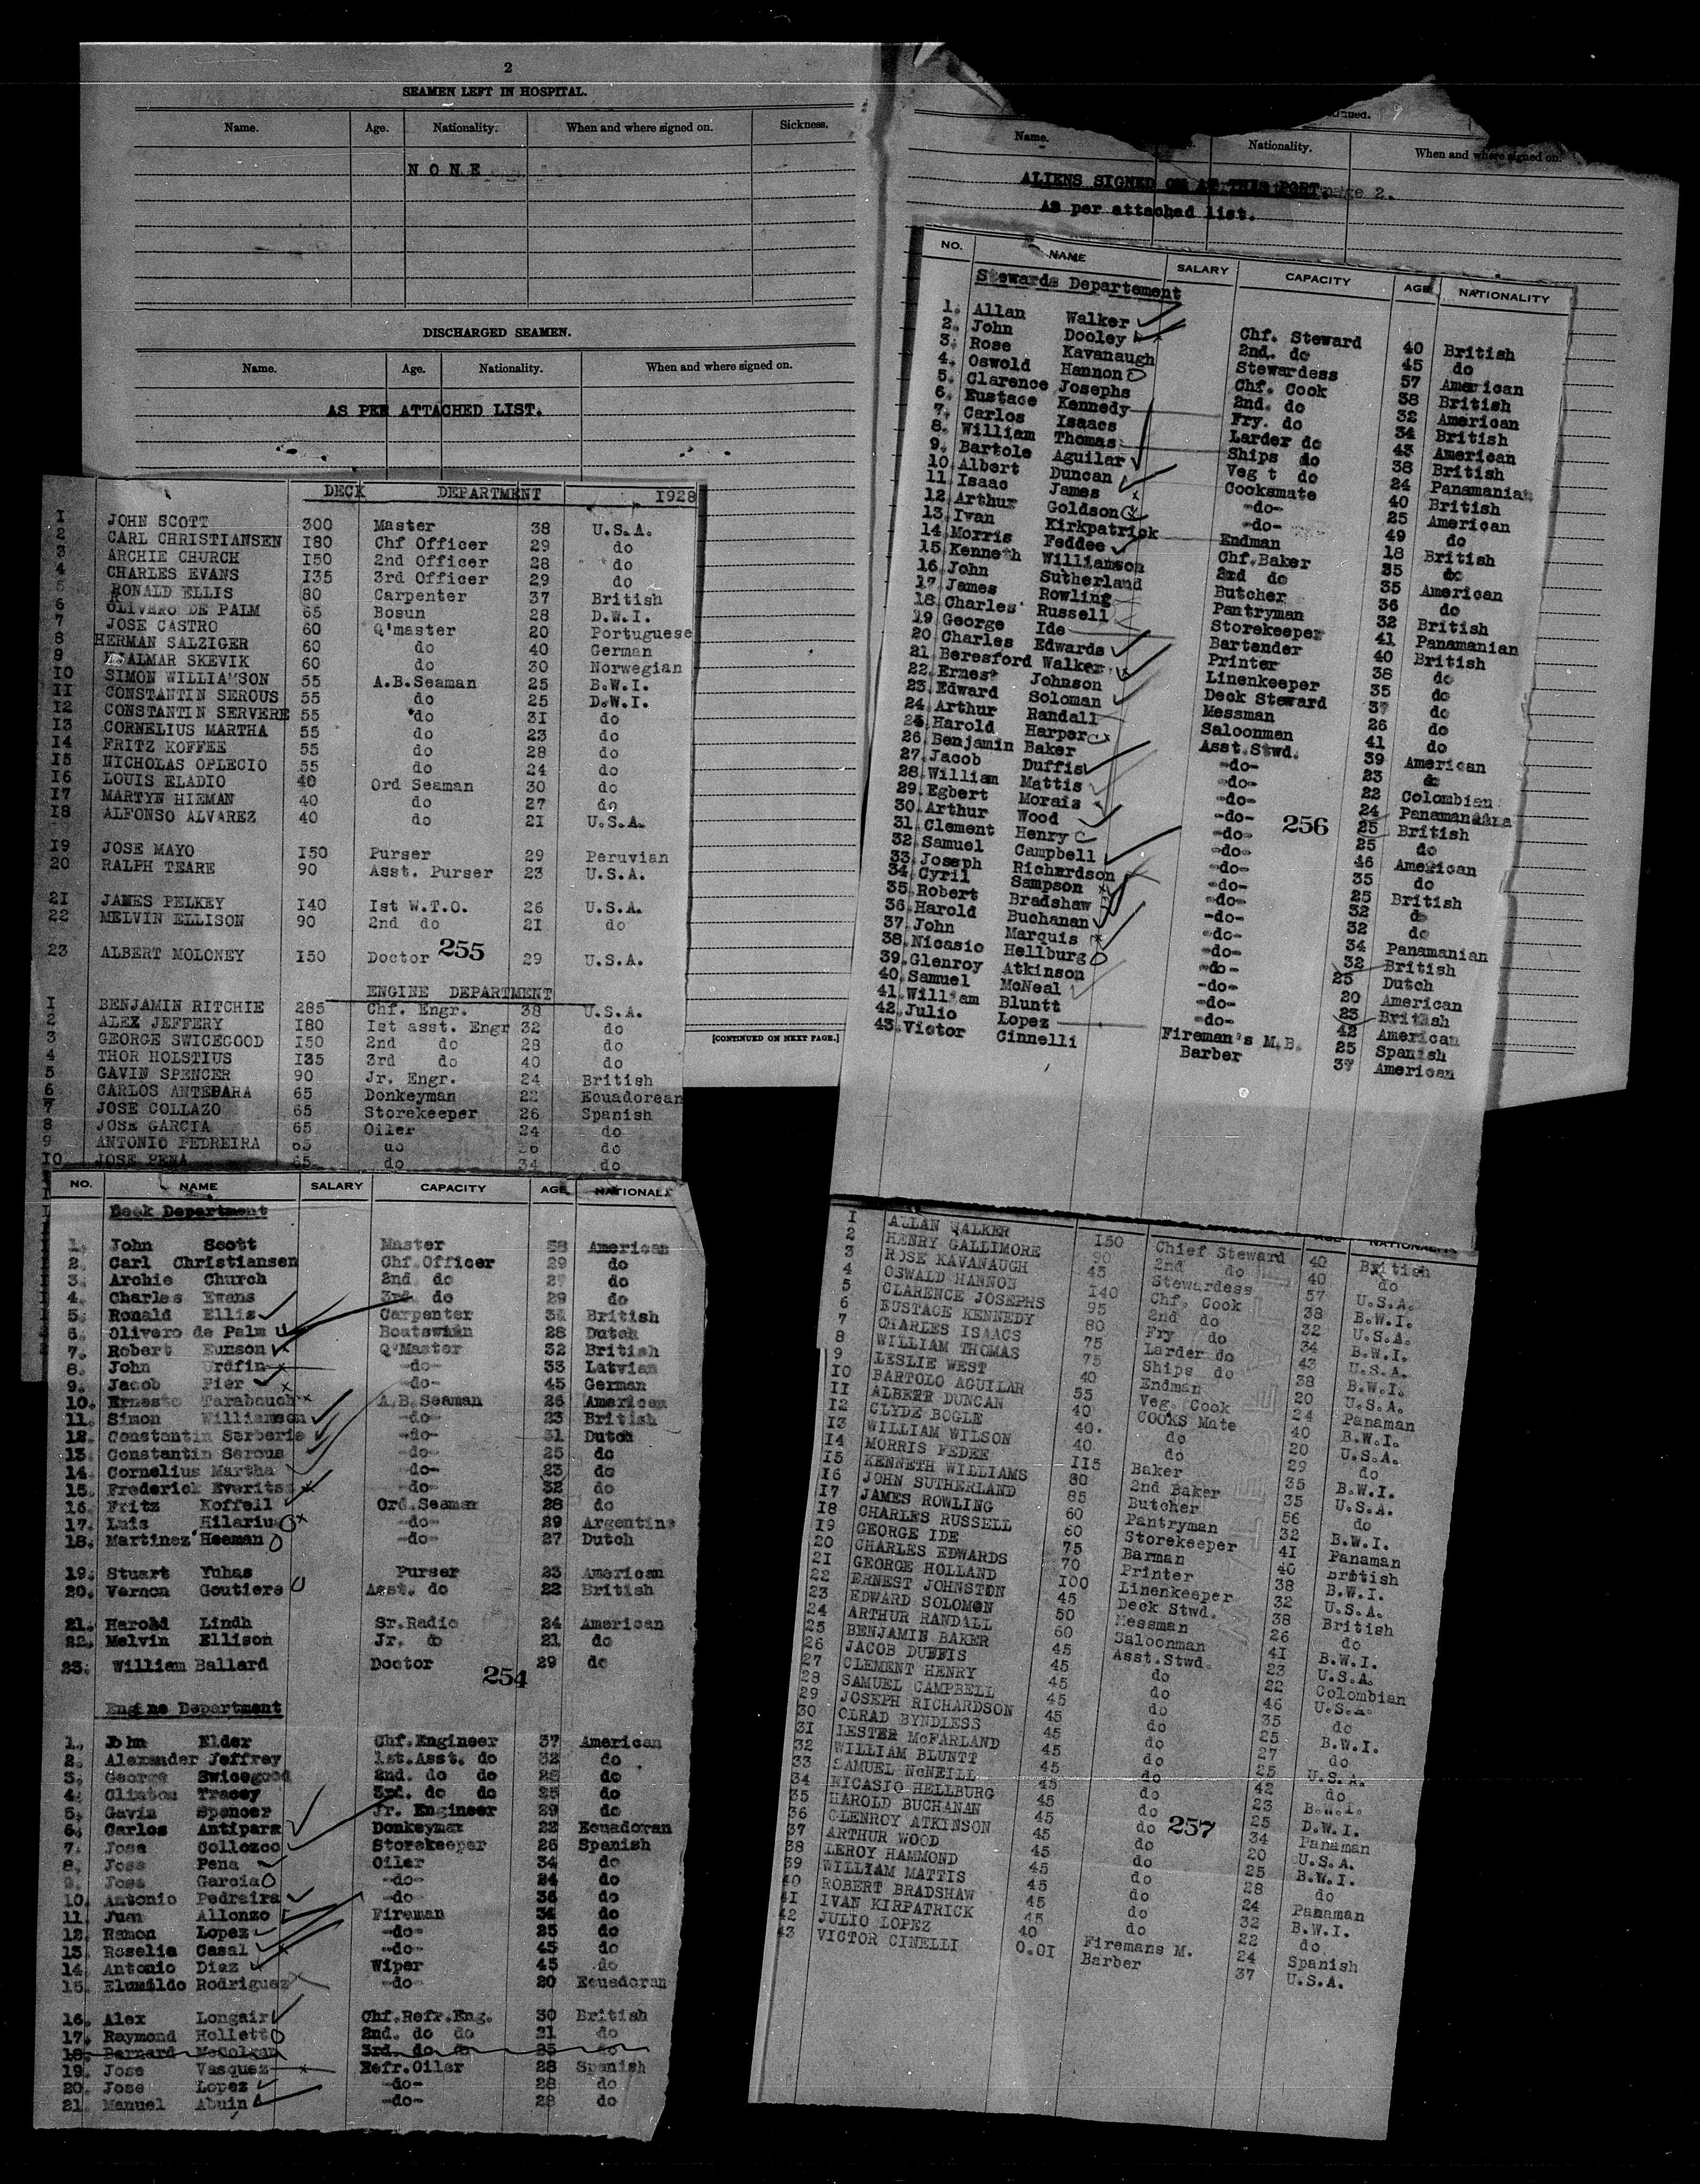 2
SEAMEN LEFT IN HOSPITAL.
Name. Age. Nationality. When and where signed on. Sickness.
NONE
DISCHARGED SEAMEN.
Name. Age. Nationality. When and where signed on.
AS PER ATTACHED LIST.
DECK DEPARTMENT 1928
1 JOHN SCOTT 300 Master 38 U.S.A.
2 CARL CHRISTIANSEN 180 Chf Officer 29 do
3 ARCHIE CHURCH 150 2nd Officer 28 do
4 CHARLES EVANS 135 3rd Officer 29 do
5 RONALD ELLIS 80 Carpenter 37 British
6 OLIVERO DE PALM 65 Bosun 28 D.W.I.
7 JOSE CASTRO 60 Q'master 20 Portuguese
8 HERMAN SALZIGER 60 do 40 German
9 SKEVIK 60 do 30 Norwegian
10 SIMON WILLIAMSON 55 A.B.Seaman 25 B.W.I.
11 CONSTANTIN SEROUS 55 do 25 D.W.I.
12 CONSTANTIN SERVERE 55 do 31 do
13 CORNELIUS MARTHA 55 do 23 do
14 FRITZ KOFFEE 55 do 28 do
15 NICHOLAS OPLECIO 55 do 24 do
16 LOUIS ELADIO 40 Ord Seaman 30 do
17 MARTYN HIEMAN 40 do 27 do
18 ALFONSO ALVAREZ 40 do 21 U.S.A.
19 JOSE MAYO 150 Purser 29 Peruvian
20 RALPH TEARE 90 Asst. Purser 23 U.S.A.
21 JAMES PELKEY 140 1st W.T.O. 26 U.S.A.
22 MELVIN ELLISON 90 2nd do 21 do
23 ALBERT MOLONEY 150 Doctor 255 29 U.S.A.
ENGINE DEPARTMENT
1 BENJAMIN RITCHIE 285 Chf. Engr. 38 U.S.A.
2 ALEX JEFFERY 180 1st asst. Engr 32 do
3 GEORGE SWICEGOOD 150 2nd do 28 do
4 THOR HOLSTIUS 135 3rd do 40 do
5 GAVIN SPENCER 90 Jr. Engr. 24 British
6 CARLOS ANTEBARA 65 Donkeyman 22 Ecuadorean
7 JOSE COLLAZO 65 Storekeeper 26 Spanish
8 JOSE GARCIA 65 Oiler 24 do
9 ANTONIO PEDREIRA 65 do 36 do
10 JOSE PENA 65 do 34 do
NO. NAME SALARY CAPACITY AGE
Deck Department
1. John Scott Master 38 American
2. Carl Christiansen Chf.Officer 29 do
3. Archie Church 2nd. do 27 do
4. Charles Evans 3rd. do 29 do
5. Ronald Ellis Carpenter British
6. Olivero de Palm Boatswain 28 Dutch
7. Robert Eunson Q'Master 32 British
8. John Urdfin -do- 33 Latvian
9. Jacob Pier -do- 45 German
10. Ernesto Tarabouch A.B.Seaman 26 American
11. Simon Williamson -do- 23 British
12. Constantin Serberie -do- 31 Dutch
13. Constantin Serous -do- 25 do
14. Cornelius Martha -do- 23 do
15. Frederick Everits -do- 32 do
16. Fritz Koffell Ord.Seaman 28 do
17. Luis Hilarius -do- 29 Argentine
18. Martinez Heeman -do- 27 Dutch
19. Stuart Yuhas Purser 23 American
20. Vernon Goutiere Asst. do 22 British
21. Harold Lindh Sr.Radio 24 American
22. Melvin Ellison Jr. do 21 do
23. William Ballard Doctor 29 do
254
Engine Department
1. John Elder Chf.Engineer 37 American
2. Alexander Jeffrey 1st.Asst. do 32 do
3. George Swicegood 2nd. do do 28 do
4. Clinton Tracey 3rd. do do 25 do
5. Gavin Spencer Jr. Engineer 29 do
6. Carlos Antipara Donkeyman 22 Ecuadoran
7. Jose Collozoo Storekeeper 26 Spanish
8. Jose Pena Oiler 34 do
9. Jose Garcia -do- 24 do
10. Antonio Pedreira -do- 36 do
11. Juan Allonzo Fireman 34 do
12. Ramon Lopez -do- 25 do
13. Roselia Casal -do- 45 do
14. Antonio Diaz Wiper 45 do
15. Elumildo Rodriguez -do- 20 Ecuadoran
16. Alex Longair Chf.Refr.Eng. 30 British
17. Raymond Hollett 2nd. do do 21 do
18. Barnard McColgan 3rd. do do 25 do
19. Jose Vasquez Refr.Oiler 28 Spanish
20. Jose Lopez -do- 28 do
21. Manuel Abuin -do- 28 do
[CONTINUED ON NEXT PAGE.]
Name. Nationality. When and where signed on.
ALIENS SIGNED ON AT THIS PORT. page 2.
As per attached list.
NO. NAME SALARY CAPACITY AGE NATIONALITY
Stewards Departement
1. Allan Walker Chf. Steward 40 British
2. John Dooley 2nd. do 45 do
3. Rose Kavanaugh Stewardess 57 American
4. Oswold Hannon Chf. Cook 38 British
5. Clarence Josephs 2nd. do 32 American
6. Eustace Kennedy Fry. do 34 British
7. Carlos Isaacs Larder do 43 American
8. William Thomas Ships do 38 British
9. Bartole Aguilar Veg t do 24 Panamanian
10. Albert Duncan Cooksmate 40 British
11. Isaac James -do- 25 American
12. Arthur Goldson -do- 49 do
13. Ivan Kirkpatrick Endman 18 British
14. Morris Feddee Chf.Baker 35 do
15. Kenneth Williamson 2nd do 35 American
16. John Sutherland Butcher 36 do
17. James Rowling Pantryman 32 British
18. Charles Russell Storekeeper 41 Panamanian
19. George Ide Bartender 40 British
20. Charles Edwards Printer 38 do
21. Beresford Walker Linenkeeper 35 do
22. Ernest Johnson Deck Steward 37 do
23. Edward Soloman Messman 26 do
24. Arthur Randall Saloonman 41 do
25. Harold Harper Asst.Stwd. 39 American
26. Benjamin Baker -do- 23 do
27. Jacob Duffis -do- 22 Colombian
28. William Mattis -do- 24
29. Egbert Morais -do- 256 25 British
30. Arthur Wood -do- 25 do
31. Clement Henry -do- 46 American
32. Samuel Campbell -do- 35 do
33. Joseph Richardson -do- 25 British
34. Cyril Sampson -do- 32 do
35. Robert Bradshaw -do- 32 do
36. Harold Buchanan -do- 34 Panamanian
37. John Marquis -do- 32 British
38. Nicasio Hellburg -do- 25 Dutch
39. Glenroy Atkinson -do- 20 American
40. Samuel McNeal -do- 23 British
41. William Bluntt -do- 42 American
42. Julio Lopez Fireman's M.B. 25 Spanish
43. Victor Cinnelli Barber 37 American
1 ALLAN WALKER 150 Chief Steward 40 British
2 HENRY GALLIMORE 90 2nd do 40 do
3 ROSE KAVANAUGH 45 Stewardess 57 U.S.A.
4 OSWALD HANNON 140 Chf. Cook 38 B.W.I.
5 CLARENCE JOSEPHS 95 2nd do 32 U.S.A.
6 EUSTACE KENNEDY 80 Fry do 34 B.W.I.
7 CHARLES ISAACS 75 Larder do 43 U.S.A.
8 WILLIAM THOMAS 75 Ships do 38 B.W.I.
9 LESLIE WEST 40 Endman 20 U.S.A.
10 BARTOLO AGUILAR 55 Veg. Cook 24 Panaman
11 ALBERT DUNCAN 40 COOKS Mate 40 B.W.I.
12 CLYDE BOGLE 40. do 20 U.S.A.
13 WILLIAM WILSON 40 do 29 do
14 MORRIS FEDEE 115 Baker 35 B.W.I.
15 KENNETH WILLIAMS 80 2nd Baker 35 U.S.A.
16 JOHN SUTHERLAND 85 Butcher 56 do
17 JAMES ROWLING 60 Pantryman 32 B.W.I.
18 CHARLES RUSSELL 60 Storekeeper 41 Panaman
19 GEORGE IDE 75 Barman 40 British
20 CHARLES EDWARDS 70 Printer 38 B.W.I.
21 GEORGE HOLLAND 100 Linenkeeper 32 U.S.A.
22 ERNEST JOHNSTON 45 Deck Stwd. 38 British
23 EDWARD SOLOMON 50 Messman 26 do
24 ARTHUR RANDALL 60 Saloonman 41 B.W.I.
25 BENJAMIN BAKER 45 Asst.Stwd. 23 U.S.A.
26 JACOB DUFFIS 45 do 22 Colombian
27 CLEMENT HENRY 45 do 46 U.S.A.
28 SAMUEL CAMPBELL 45 do 35 do
29 JOSEPH RICHARDSON 45 do 25 B.W.I.
30 CLRAD BYNDLESS 45 do 27 do
31 LESTER McFARLAND 45 do 25 U.S.A.
32 WILLIAM BLUNTT 45 do 42 do
33 SAMUEL McNEILL 45 do 23 B.W.I.
34 NICASIO HELLBURG 45 do 25 D.W.I.
35 HAROLD BUCHANAN 45 do 257 34 Panaman
36 GLENROY ATKINSON 45 do 20 U.S.A.
37 ARTHUR WOOD 45 do 25 B.W.I.
38 LEROY HAMMOND 45 do 28 do
39 WILLIAM MATTIS 45 do 24 Panaman
40 ROBERT BRADSHAW 45 do 32 B.W.I.
41 IVAN KIRKPATRICK 40 do 22 do
42 JULIO LOPEZ Firemans M. 24 Spanish
43 VICTOR CINELLI 0.01 Barber 37 U.S.A.